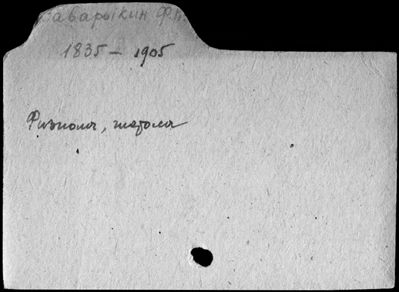 Заварыкин Ф.Н.
1835 – 1905
Физиолог, гистолог